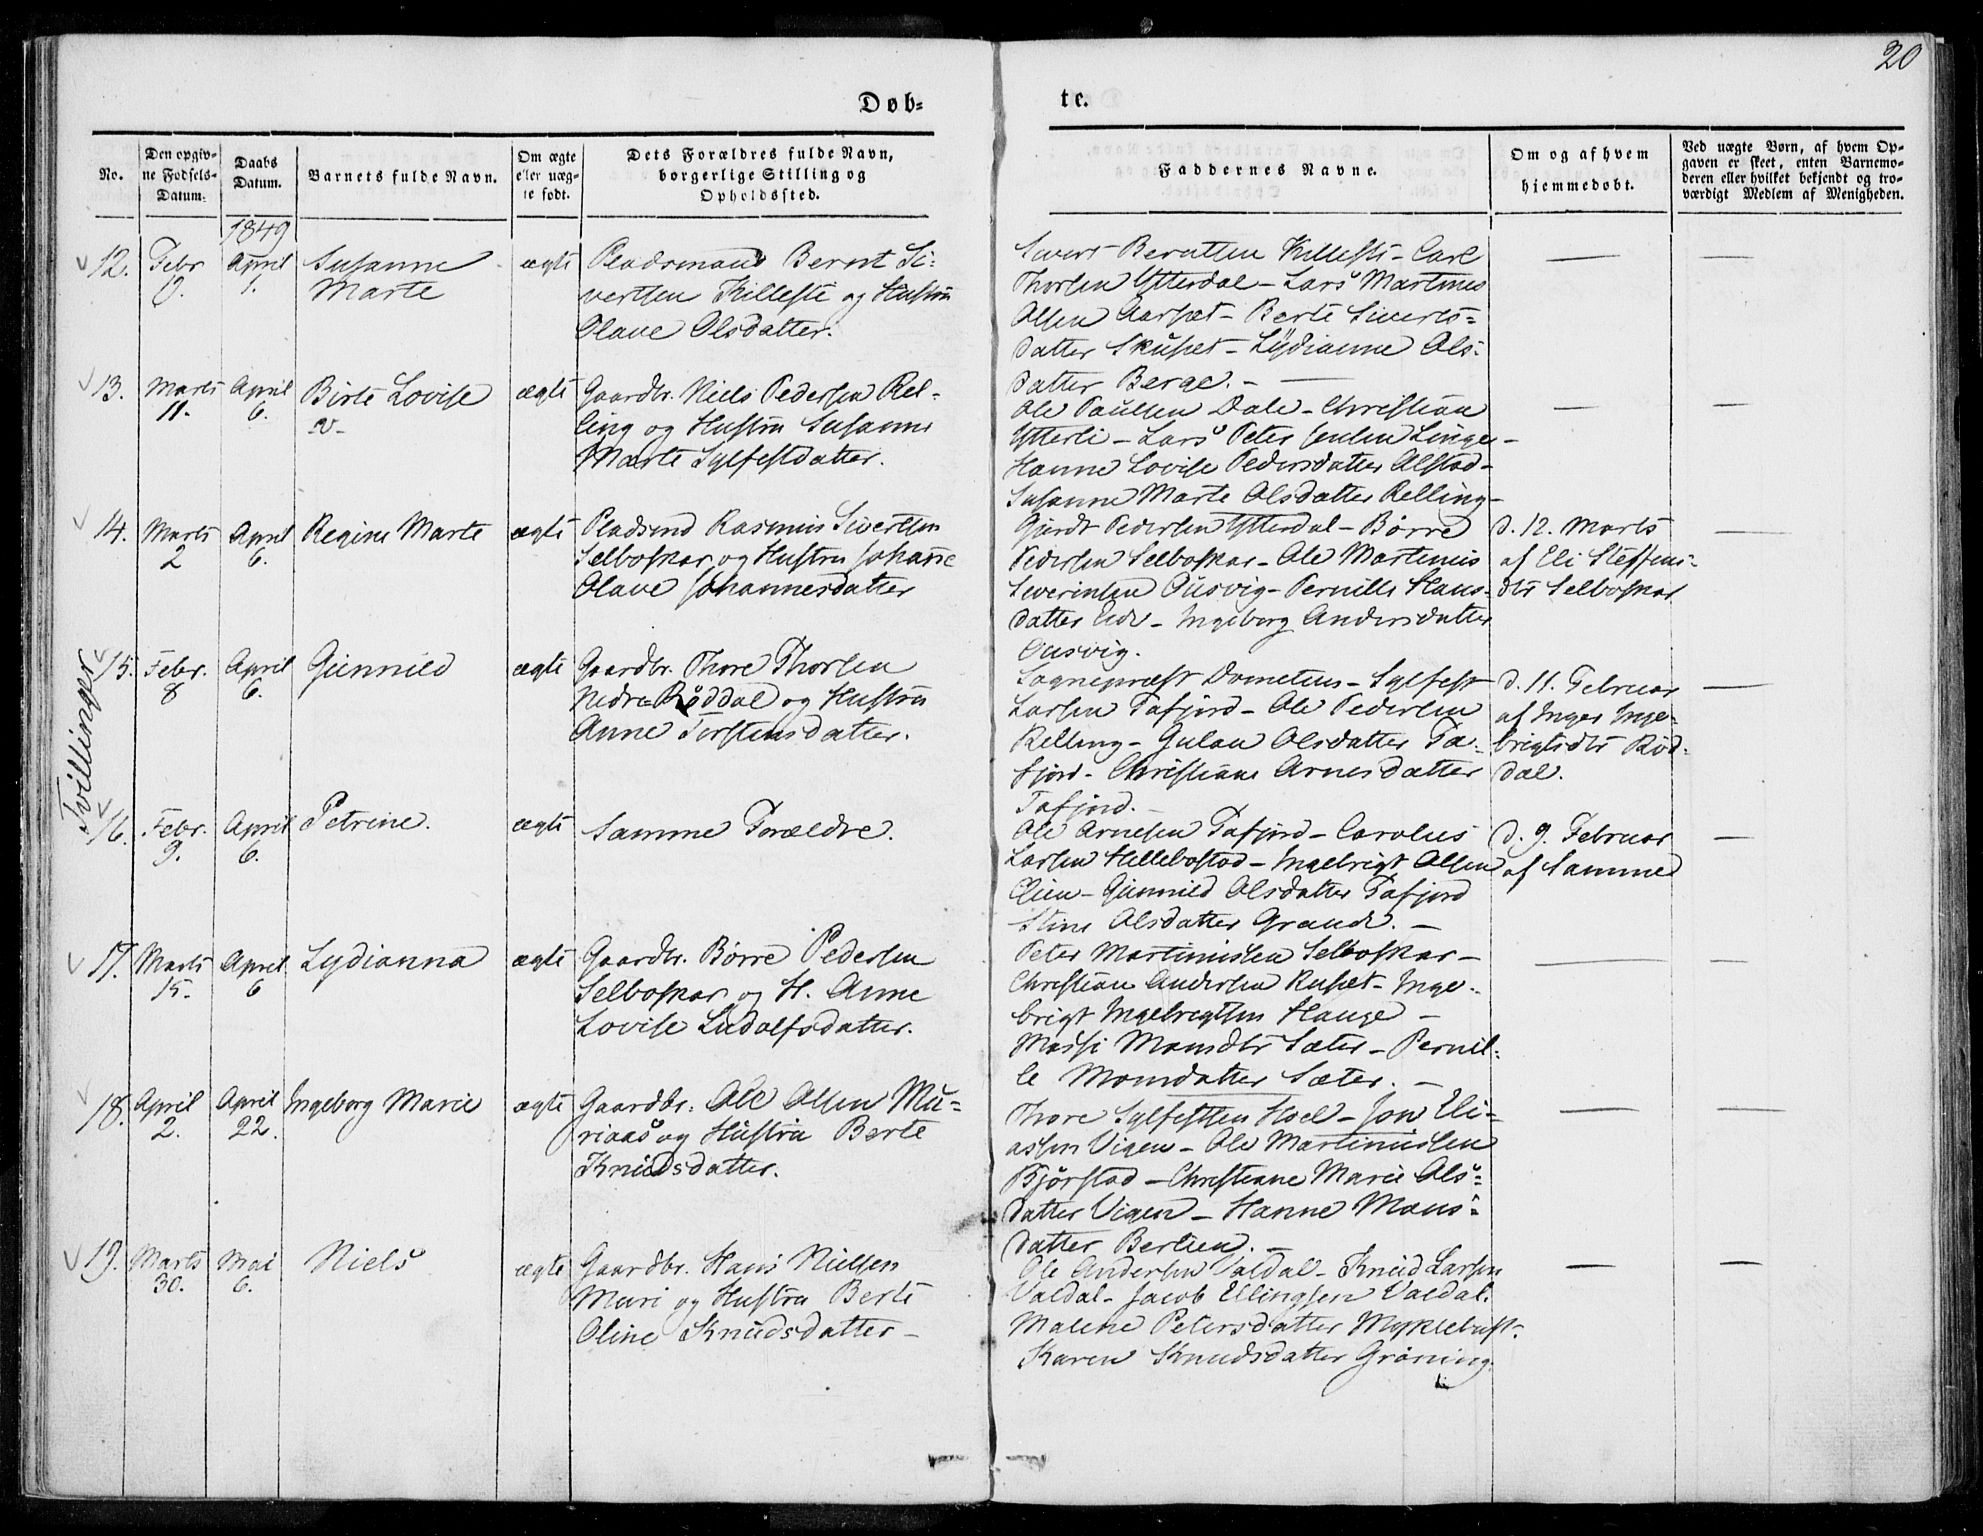 20
Døb=
te.
No.
Den opgiv-
ne Fødsels-
Datum.
Daabs
Datum.
Barnets fulde Navn.
Om ægte
eller uæg-
te født.
Dets Forældres fulde Navn,
borgerlige Stilling og
Opholdssted.
Faddernes Navne.
Om og af hvem
hjemmedøbt.
Ved uægte Børn, af hvem Op-
gaven er skeet, enten Barnemo-
deren eller hvilket bekjendt og tro-
værdigt Medlem af Menigheden.
1849
12. Febr April Susanne ægte Pladsmand Bernt Si=
1. Marte vertsen Killesti og Hustru
Olave Olsdatter.
Sivert Berntsen Killesti - Carl
Thorsen Ytterdal - Lars Martinus
Olsen Aarset - Berte Siverts=
datter Skuset - Lydianne Ols=
datter Berge. -
13. Marts April Birte Lovise ægte Gaardbr. Niels Pedersen Rel-
11. 6. ling og Hustru Susanne
Marte Sylfestdatter.
Ole Paulsen Dale - Christian
Ytterli - Lars Peter Jensen Linge -
Hanne Lovise Pedersdatter Alstad -
Susanne Marte Olsdatter Relling -
14. Marts April Regine Marte ægte Pladsmd Rasmus Sivertsen
2 6. Selboskar og Hustru Johanne
Olave Johannesdatter
Gjerdt Pedersen Ytterdal - Børre
Pedersen Selboskar - Ole Martinus
Severinsen Ousvig - Pernille Hans-
datter Eide - Ingeborg Andersdatter
Ousvig.
d. 12. Marts
af Eli Steffens=
dtr Selboskar
Tvillinger
15. Febr. April Gunnild ægte Gaardbr. Thore Thorsen
8 6. Nedre Røddal og Hustru
Anne Torstensdatter.
Sognepræst Dometius - Sylfest
Larsen Tafjord - Ole Pedersen
Relling - Gulau Olsdatter Ta-
fjord - Christiane Arnesdatter
Tafjord. -
d. 11. Februar
af Inger Inge-
brigtsdtr Rød-
dal.
16. Febr. April Petrine. ægte Samme Forældre.
9. 6.
Ole Arnesen Tafjord - Carolus
Larsen Hellebostad - Ingebrigt Olsen
Lien - Gunnild Olsdatter Tafjord
Stine Olsdatter Grande. -
d. 9. Februar
af Samme
17. Marts April Lydianna ægte Gaardbr. Børre Pedersen
15. 6 Selboskar og H. Anne
Lovise Ludolfsdatter.
Peter Martinussen Selboskar -
Christian Andersen Ruset - Inge-
brigt Ingebrigtsen Hauge -
Massi Monsdtr Sæter - Pernil=
le Monsdatter Sæter. -
18. April April Ingeborg Marie ægte Gaardbr. Ole Olsen Mu=
2. 22. riaas og Hustru Berte
Knudsdatter.
Thore Sylfestsen Hoel - Jon Eli-
assen Vigen - Ole Martinussen
Bjørstad - Christiane Marie Ols=
datter Vigen - Hanne Mons=
datter Berlien. -
19. Marts Mai Niels ægte Gaardbr. Hans Nielsen
30. 6. Muri og Hustru Berte
Oline Knudsdatter -
Ole Andersen Valdal - Knud Larsen
Valdal - Jacob Ellingsen Valdal.
Malene Petersdatter Myklebust.
Karen Knudsdatter Grøning.